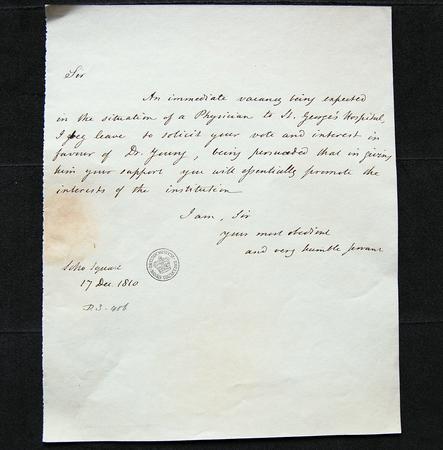 Sir
An immediate vacancy being expected
in the situation of a Physician to St. George's Hospital,
I beg leave to solicit your vote and interest in
favour of Dr. Young, being persuaded that in giving
him your support you will essentially promote the
interests of the institution
I am, Sir
your most obedient
and very humble servant
Soho Square
17 Dec. 1810